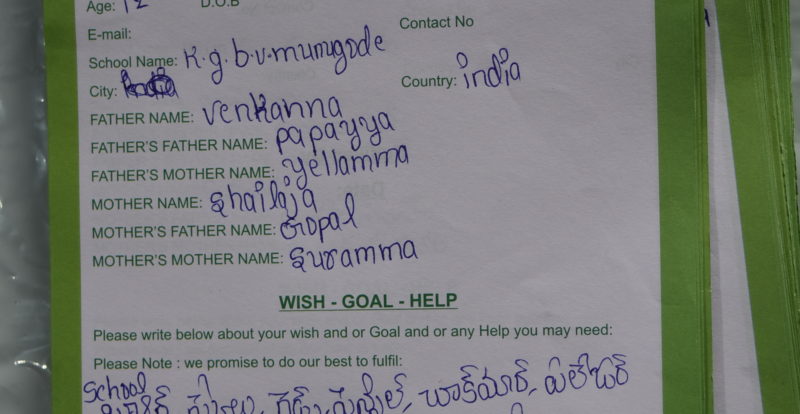 Age: 12 D.O.B
E-mail: Contact No
School Name: K.g.b.v.munugode
City: Country: india
FATHER NAME: Venkanna
FATHER'S FATHER NAME: papayya
FATHER'S MOTHER NAME: yellamma
MOTHER NAME: Shailaja
MOTHER'S FATHER NAME: Gopal
MOTHER'S MOTHER NAME: Suramma
WISH - GOAL - HELP
Please write below about your wish and or Goal and or any Help you may need:
Please Note : we promise to do our best to fulfil:
School